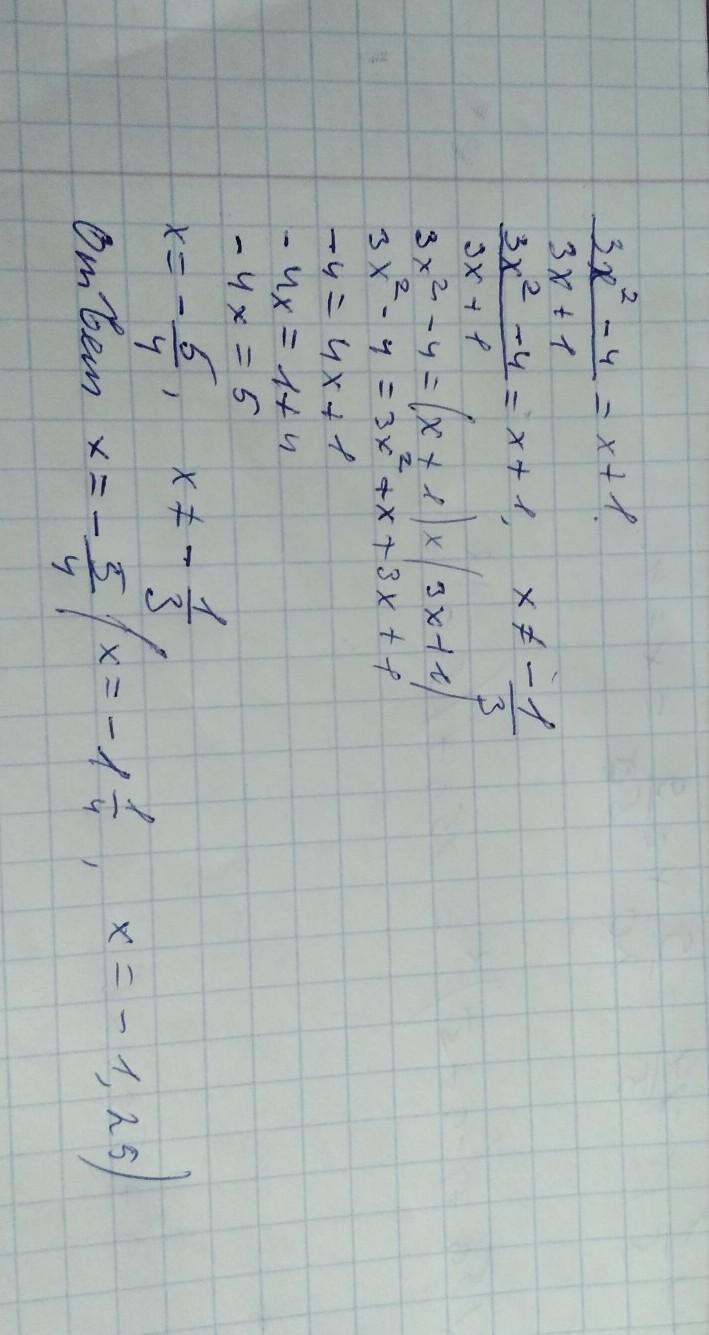 3x² - 4 / 3x + 1 = x + 1
3x² - 4 / 3x + 1 = x + 1, x ≠ - 1/3
3x² - 4 = (x + 1) x (3x + 1)
3x² - 4 = 3x² + x + 3x + 1
-4 = 4x + 1
- 4x = 1 + 4
- 4x = 5
x = - 5/4, x ≠ - 1/3
Ответ x = - 5/4 (x = - 1 1/4, x = - 1,25)